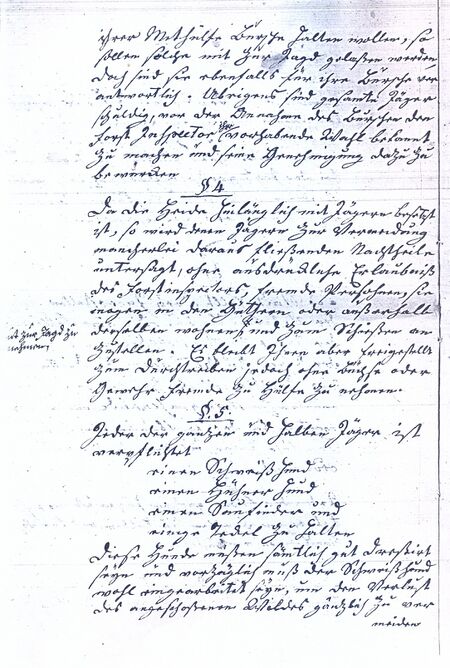 ihrer Methülfe Bursche halten wollen, so
sollen solche mit zur Jagd gelassen werden
doch sind sie ebenfalls für ihre Bursche ver
antwortlich. Uebrigens sind gesamte Jäger
schuldig, vor der Annahme des Burschen dem
Forst Inspector ihre vorhabende Wahl bekannt
zu machen und seine Genehmigung dazu zu
bewürken
§ 4
Da die Heide hinlänglich mit Jägern besetzt
ist, so wird denen Jägern zur Vermeidung
mancherlei daraus fließenden Nachtheile
untersagt, ohne ausdrückliche Erlaubniß
des Forstinspectors, fremde Persohnen, sie
mögen in den Güthern oder außerhalb
derselben wohnen, und zum Schießen an
zustellen. Es bleibt Ihnen aber freigestellt
zum Durchtreiben jedoch ohne Büchse oder
Gewehr Fremde zu Hülfe zu nehmen.
mit zur Jagd zu
nehmen,
§. 5.
Jeder der ganzen und halben Jäger ist
verpflichtet
einen Schweißhund
einen Hühner Hund
einen Saufinder und
einige Teckel zu halten
Diese Hunde müßen sämtlich gut dressirt
seyn und vorzüglich muß der Schweißhund
wohl eingearbeitet seyn, um den Verlust
des angeschossenen Wildes gänzlich zu ver
meiden